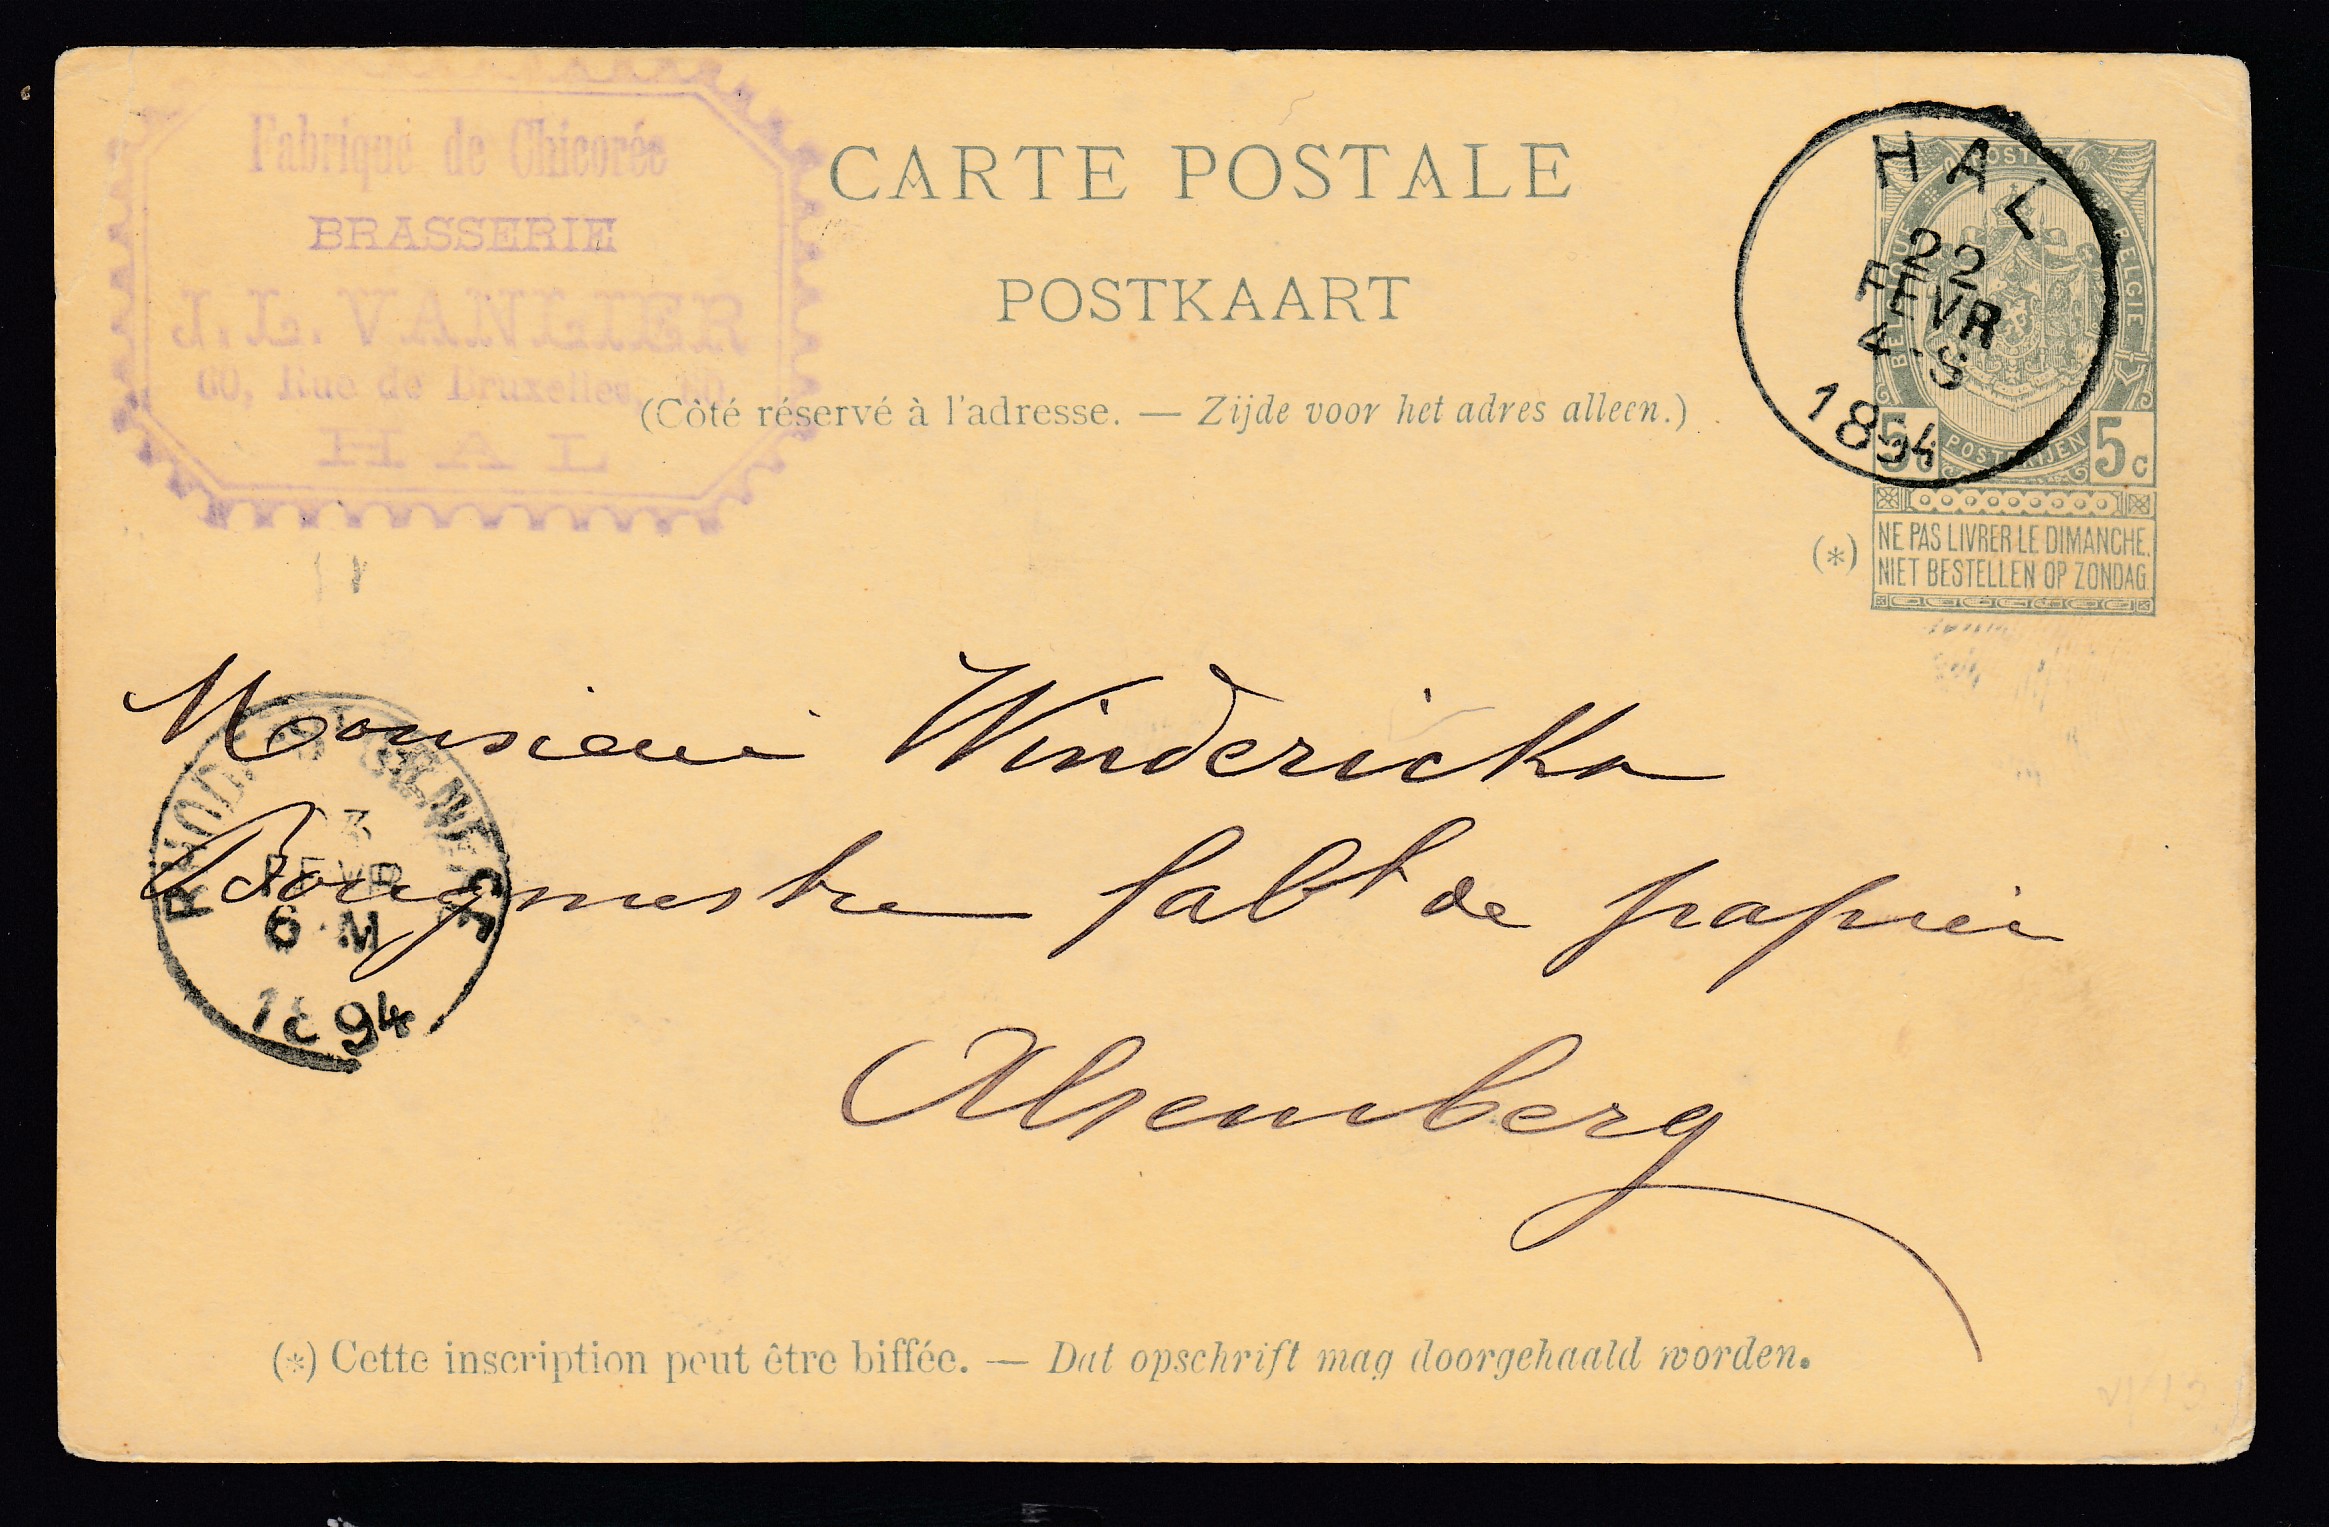 Fabrique de Chicorée
BRASSERIE
J. L. VANLIER
60, Rue de Bruxelles, 60
HAL
CARTE POSTALE
POSTKAART
(Côté réservé à l'adresse. — Zijde voor het adres alleen.)
HAL
22
FEVR
4-S
1894
POSTES
BELGIQUE
BELGIE
5c POSTERIJEN 5c
(*) NE PAS LIVRER LE DIMANCHE.
NIET BESTELLEN OP ZONDAG.
Monsieur Winderickx
Bourgmestre fabt de papier
Alsemberg
3
FEVR
6·M
1894
(*) Cette inscription peut être biffée. — Dat opschrift mag doorgehaald worden.